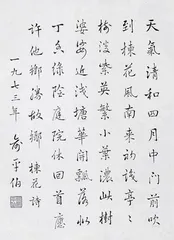 天氣清和四月中门前吹
到楝花風南来初識亭亭
樹淡紫英繁小葉濃此樹
婆娑近浅塘華開飄落似
丁香綠陰庭院休回首應
許他鄉勝故鄉 楝花詩
一九七三年 俞平伯